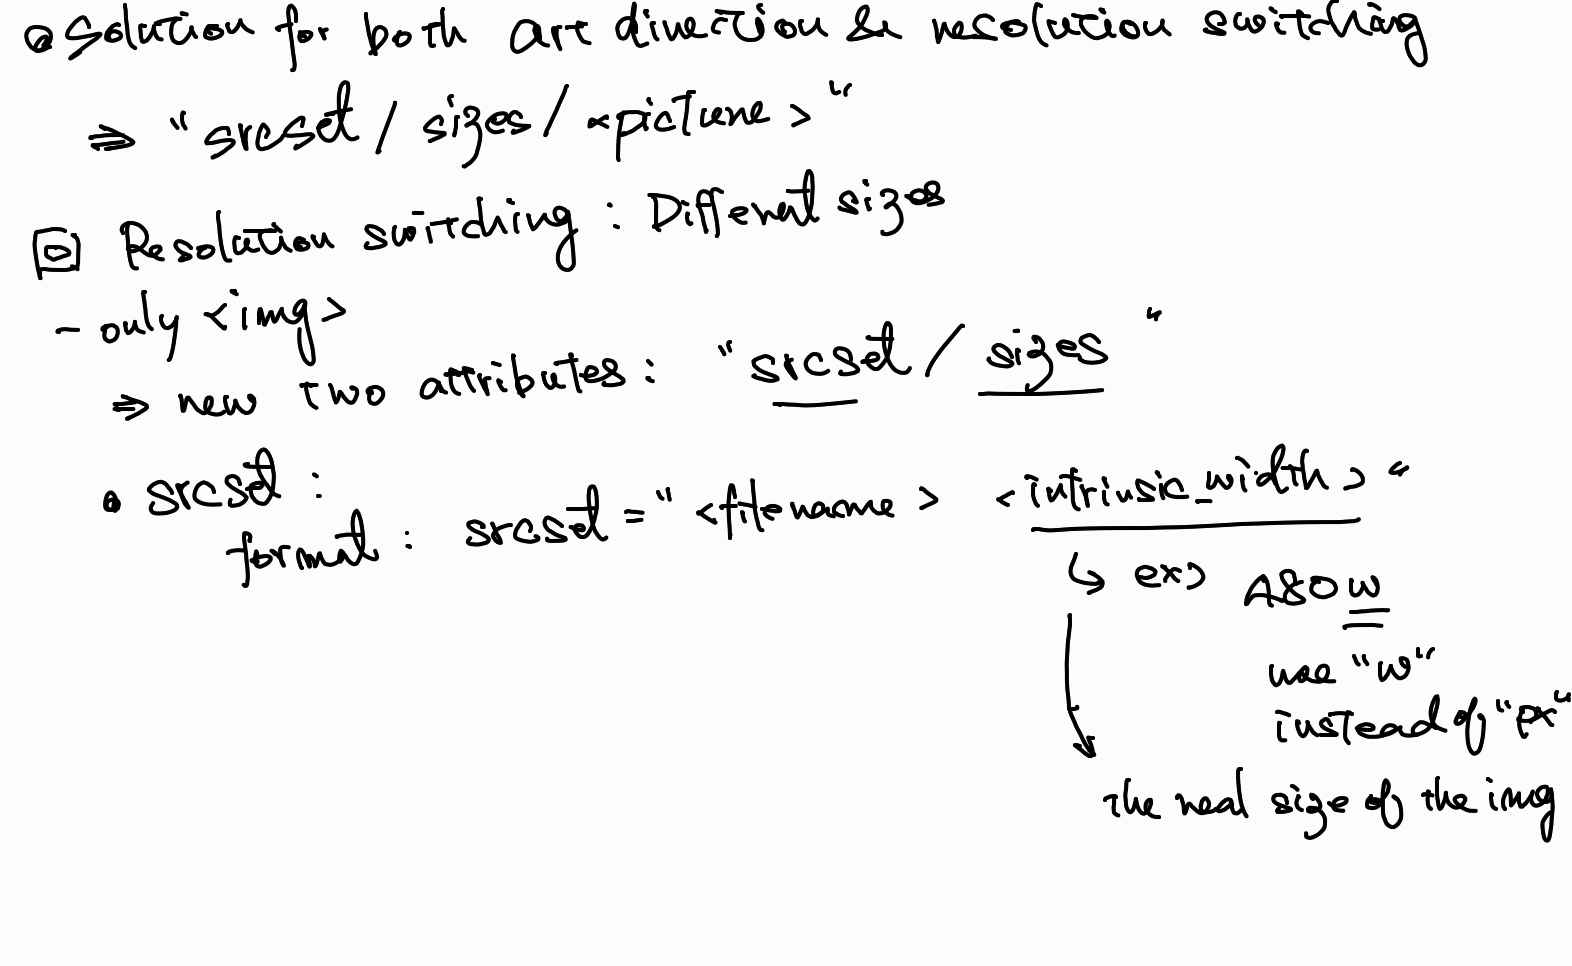 solution for both art direction & resolution switching
⇒ "srcset / sizes / <picture>"
Resolution switching : Different sizes
- only <img>
⇒ new two attributes : "srcset / sizes"
• srcset :
format : srcset = "<filename> <intrinsic_width>"
↳ ex) 480w
use "w"
instead of "px"
the real size of the img